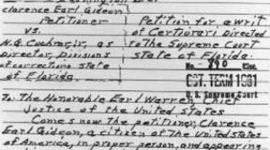 Clarence Earl Gideon
Petitioner
vs.
H.G. Cochran, Jr., as
Director, Divisions
of corrections State
of Florida
Petition for a writ
of Certiorari Directed
to The Supreme Court
State of Florida
No. 790
OCT. TERM 1961
U.S. Supreme Court
To: The Honorable Earl Warren, Chief
Justice of the United States
Comes now the petitioner, Clarence
Earl Gideon, a citizen of The United states
of America, in proper person, and appearing